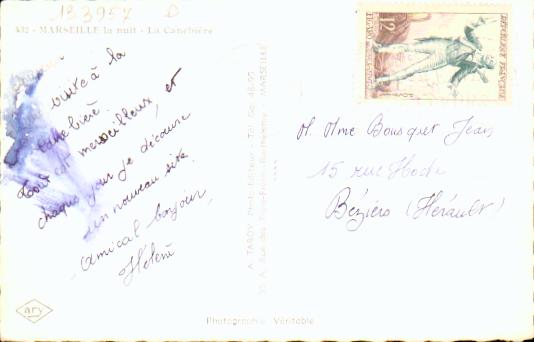 133957 D
432 - MARSEILLE la nuit - La Canebière
visite à la
Canebière.
Tout est merveilleux, et
chaque jour je découvre
un nouveau site.
Amical bonjour,
Hélène
ary
A. TARDY Photo-Editeur - Tél. Ga. 48-95
MARSEILLE
Photographie Véritable
12F
REPUBLIQUE FRANÇAISE
M. Mme Bousquet Jean
15 rue Hoche
Béziers (Hérault)